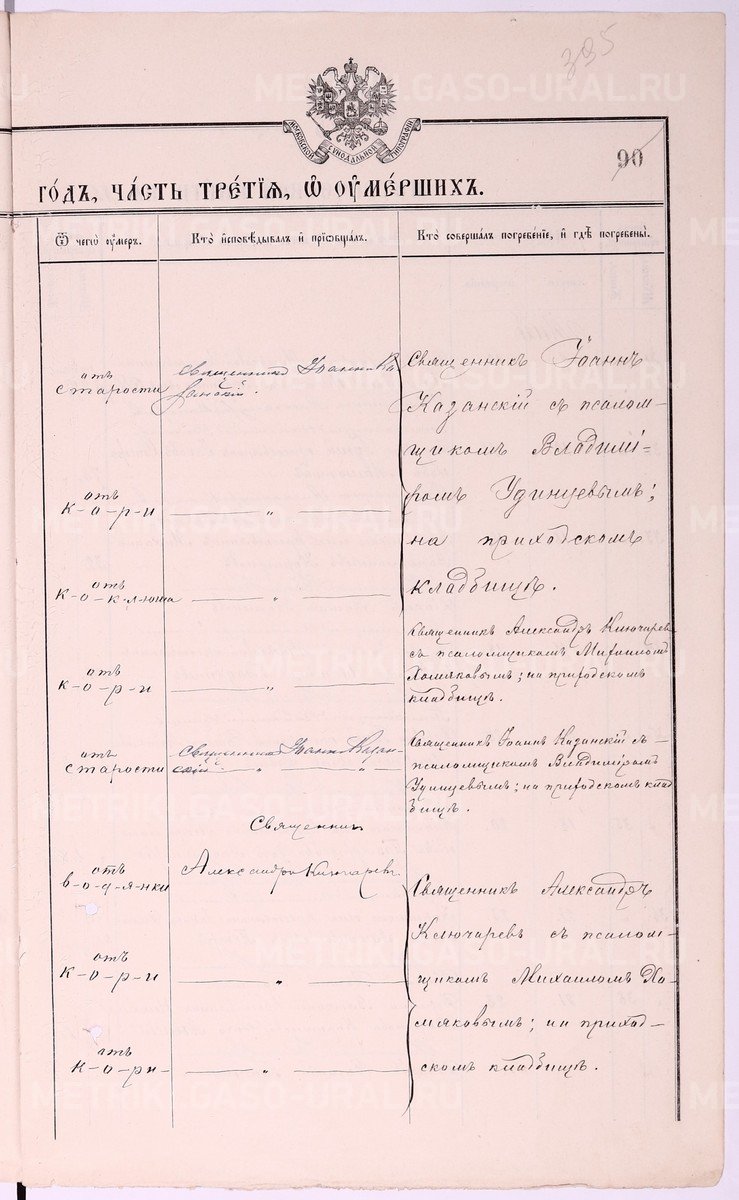 395
METRIKI.GASO-URAL.RU
МОСКОВСКОЙ СѴНОДАЛЬНОЙ ТИПОГРАФІИ
90
ГО́ДЪ, ЧА́СТЬ ТРЕ́ТІѦ, Ѡ҆ ОУ҆МЕ́РШИХЪ.
Ѿ чегѡ̀ оу҆́меръ.
Кто̀ и҆сповѣ́дывалъ и҆ прїѡбща́лъ.
Кто̀ соверша́лъ погребе́нїе, и҆ гдѣ̀ погребены̀.
отъ
старости
Священникъ Іоаннъ Ка-
занскій.
Священникъ Іоаннъ
Казанскій съ псалом-
щикомъ Владимі-
ромъ Удинцевымъ;
на приходскомъ
кладбищѣ.
отъ
к-о-р-и
— „ —
отъ
к-о-к-люша
— „ —
отъ
к-о-р-и
— „ —
Священникъ Александръ Ключаревъ
съ псаломщикомъ Михаиломъ
Хомяковымъ; на приходскомъ
кладбищѣ.
отъ
старости
Священникъ Іоаннъ Казан-
скій — „ — „ —
Священникъ Іоаннъ Казанскій съ
псаломщикомъ Владиміромъ
Удинцевымъ; на приходскомъ клад
бищѣ.
отъ
в-о-д-я-нки
Священникъ
Александръ Ключаревъ.
Священникъ Александръ
Ключаревъ съ псалом-
щикомъ Михаиломъ Хо-
мяковымъ; на приход-
скомъ кладбищѣ.
отъ
к-о-р-и
— „ —
отъ
к-о-ри-
— „ —